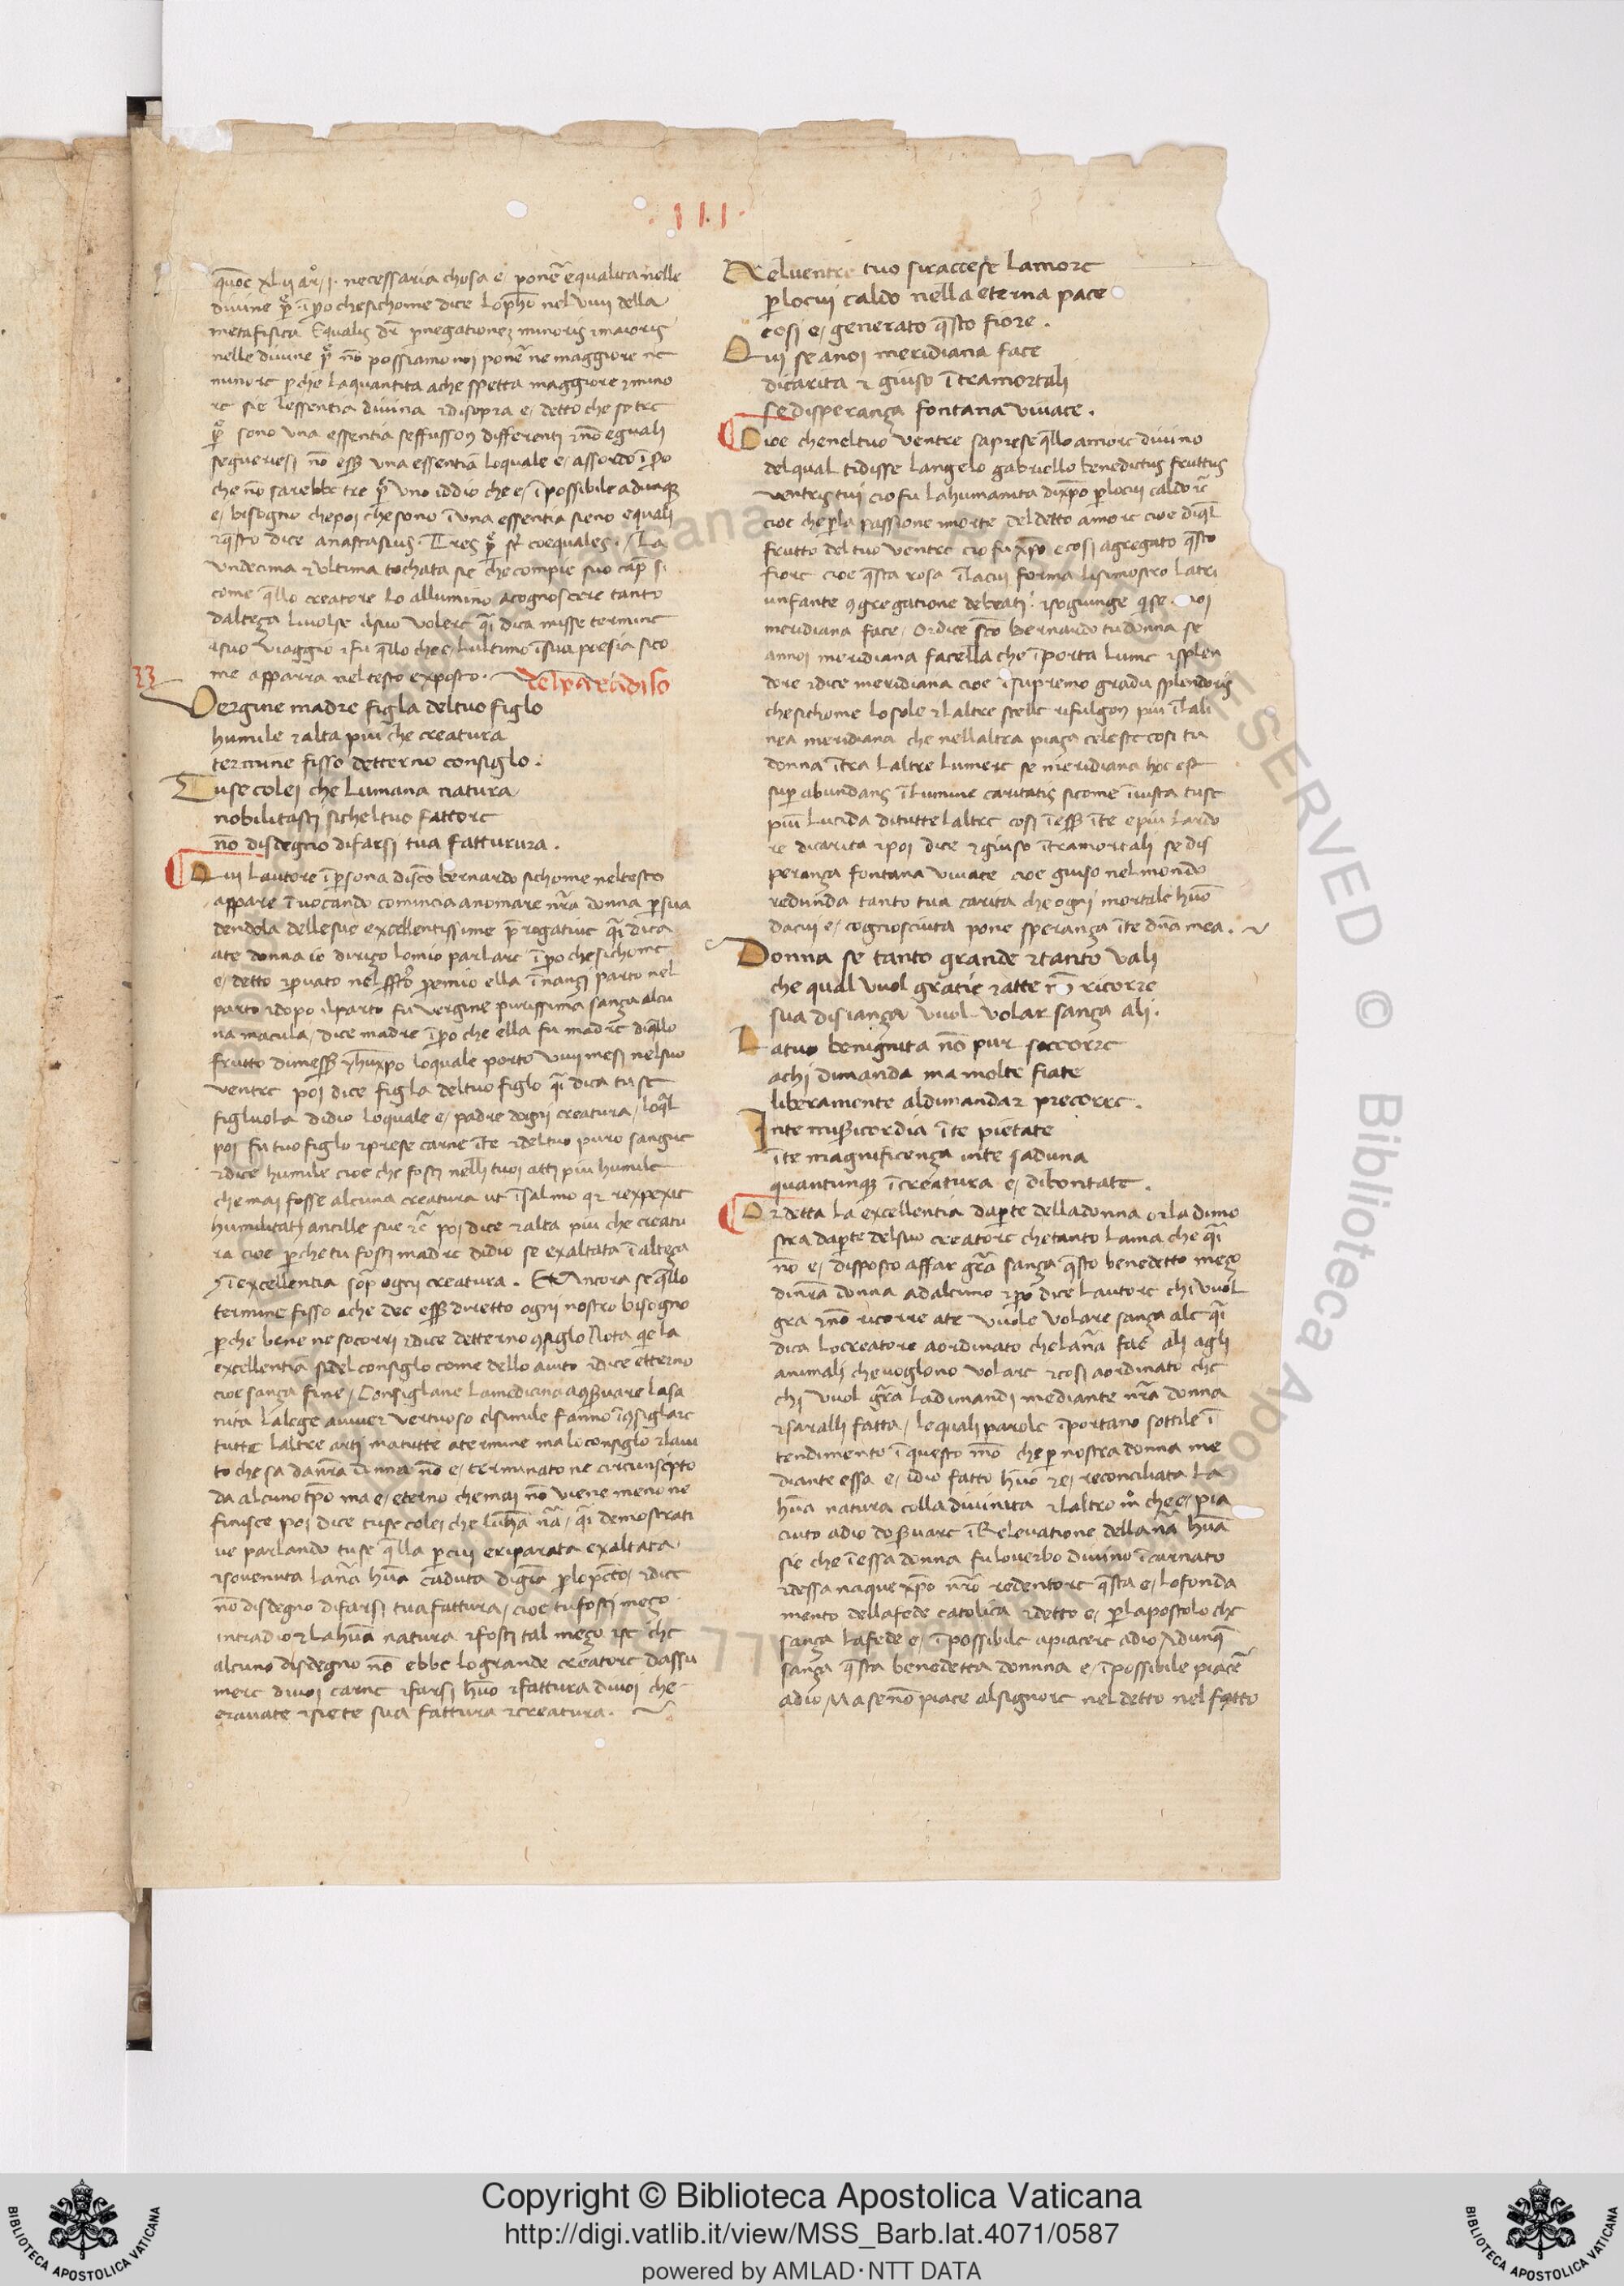 · III ·
q̄one xlii ar̊. i. necessaria chosa e, ponēr equalita nelle
divine ꝑ̊. īpo che sichome dice Lo pħo nel viiii della
metafisica Equalis dr̄ ꝑ negationeȝ minoris ⁊ maioris
nelle divine ꝑ̊ nō possiamo noi ponēr ne maggiore ne
minore ꝑche la quantita ache spetta maggiore ⁊ mino
re sie lessentia divina ⁊ disopra e, detto che se tre
ꝑ̊ sono una essentia seffusson differenti ⁊ nō eguali
segueriesi nō essꝫ una essentia loquale e, assordo īpo
che nō sarebbe tre ꝑ̊ uno iddio che e, īpossibile adunqꝫ
e, bisogno che poi che sono ī una essentia sieno equali
⁊ q̄sto dice anastasius. Tres ꝑ̊ st̄ coequales. La
undecima ⁊ ultima tochata sie che compie suo cap̄ si
come q̄llo creatore lo allumino acognoscere tanto
dalteza li volse il suo volere q̄i dica misse termine
⁊ suo viaggio ⁊ fu q̄llo che e, lultimo ī sua presia sico
me apparra nel testo exposto.
33 del paradiso
Vergine madre figla del tuo figlo
humile ⁊ alta piu che creatura
termine fisso detterno consiglo.
Tu se colei che lumana natura
nobilitasti sichel tuo fattore
nō disdegno difarsi tua fattura.
Qui lautore ī ꝑsona di sc̄o bernardo sichome nel testo
appare īvocando comincia anomare nr̄a donna ꝑsua
dendola delle sue excellentissime ꝑrogative q̄i dica
ate donna io dirigo lo mio parlare īpo che sichome
e, detto ⁊ ꝓvato nel ella īnanzi parto nel
parto ⁊ dopo il parto fu vergine purissima sanza alcu
na macula, dice madre īpo che ella fu madre di q̄llo
frutto loquale porto viiii mesi nel suo
ventre poi dice figla del tuo figlo q̄i dica tu se
figluola didio loquale e, padre dogni creatura, loq̄l
poi fu tuo figlo ⁊ prese carne īte ⁊ del tuo puro sangue
⁊ dice humile cioe che fosti nelli tuoi atti piu humile
che mai fosse alcuna creatura ut ī salmo qꝛ rexpexit
humilitatē ancille sue ⁊c̄ poi dice ⁊ alta piu che creatu
ra cioe ꝑche tu fosti madre didio se exaltata ī alteza
⁊ ī excellentia sop̄ ogni creatura. Et Ancora se q̄llo
termine fisso ache dee essꝫ diretto ogni nostro bisogno
ꝑche bene ne socorri ⁊ dice detterno ꝯsiglo Nota q̄ la
excellentia si del consiglo come dello aiuto ⁊ dice etterno
cioe sanza fine, Consiglane la medicina aꝯsꝫvare la sa
nita la lege aviver vertuoso el simile fanno īꝯsiglare
tutte laltre arti ma tutte a termine ma lo consiglo ⁊ laiu
to che sa da nr̄a donna nō e, terminato ne circuiscripto
da alcuno tp̄o ma e, eterno che mai nō viene meno ne
finisce poi dice tu se colei che luh̄a nā, q̄i demostrati
ve parlando tu se q̄lla ꝑcui e riparata exaltata
⁊ sovenuta lan̄a hūa caduta di gr̄a ꝑlo pc̄to, ⁊ dice
nō disdegno difarsi tua fattura, cioe tu fosti mezo
intra dio ⁊ la hūa natura ⁊ fosti tal mezo ⁊ se che
alcuno disdegno nō ebbe lo grande creatore dassu
mere di voi carne ⁊ farsi hūo ⁊ fattura di voi che
eravate ⁊ siete sua fattura ⁊ creatura.
Nel ventre tuo si raccese lamore
ꝑlo cui caldo nella eterna pace
cosi e, generato q̄sto fiore.
Qui se anoi meridiana face
dicarita ⁊ giuso ītra mortali
se disperanza fontana vivace.
Cioe che nel tuo ventre saprese q̄llo amore divino
del qual ti disse langelo gabriello benedictus fruttus
ventris tui cio fu la humanita dixp̄o ꝑlo cui caldo ⁊c̄
cioe che ꝑla passione ⁊ morte del detto amore cioe di q̄l
frutto del tuo ventre cio fu xp̄o e cosi agregato q̄sto
fiore cioe q̄sta rosa ī la cui forma li si mostro la tri
unfante ꝯgregatione de beati. ⁊ sogiunge qi se noi
meridiana face, Or dice sc̄o bernardo tu donna se
annoi meridiana facella che īporta lume ⁊ splen
dore ⁊ dice meridiana cioe ī supremo gradu splendoris
che sichome lo sole ⁊ laltre stelle rifulgon piu ī la li
nea meridiana che nellaltra piaza celeste cosi tu
donna ītra laltre lumere se meridiana hoc est
suꝑ abundans ī lumine caritatis sicome ī vista tu se
piu lucida di tutte laltre cosi ī essꝫ īte e piu lardo
re dicarita ⁊ poi dice ⁊ giuso ītra mortali se dis
peranza fontana vivace cioe giuso nel mondo
redunda tanto tua carita che ogni mortale hūo
dacui e, cognosciuta pone speranza īte dn̄a mea.
Donna se tanto grande ⁊ tanto vali
che qual vuol gratie ⁊ atte nō ricorre
sua disianza vuol volar sanza ali.
La tuo benignita nō pur soccorre
achi dimanda ma molte fiate
liberamente al dimandar precorre.
In te misꝫicordia īte pietate
īte magnificenza inte saduna
quantunqꝫ ī creatura e, di bontate.
Or detta la excellentia daꝑte della donna or la dimo
stra daꝑte del suo creatore che tanto lama che q̄i
nō e, disposto affar gr̄a sanza q̄sto benedetto mezo
di nr̄a donna ad alcuno ⁊ ꝑo dice lautore chi vuol
gra ⁊ nō ricorre ate vuole volare sanza ale q̄i
dica lo creatore aordinato che lan̄a ali agli
animali che voglono volare ⁊ cosi aordinato che
chi vuol gr̄a la dimandi mediante nr̄a donna
⁊ saralli fatta, lequali parole īportano sottile ī
tendimento ī questo mō che ꝑ nostra donna me
diante essa e, idio fatto hūo ⁊ e, reconciliata la
hūa natura colla divinita ⁊ laltro m̊ che e, pia
ciuto adio dosꝫvare ī Relevatione della nā hūa
sie che ī essa donna fu lo verbo divino īcarnato
⁊ dessa naque xp̄o nr̄o redentore q̄sta e, lo fonda
mento della fede catolica ⁊ detto e, ꝑ lapostolo che
sanza la fede e, īpossibile apiacere adio Adunqꝫ
sanza q̄sta benedetta donnna e, īpossibile piacēr
adio Ma se nō piace al signore nel detto nel fatto
Copyright © Biblioteca Apostolica Vaticana
http://digi.vatlib.it/view/MSS_Barb.lat.4071/0587
powered by AMLAD·NTT DATA
BIBLIOTECA APOSTOLICA VATICANA
BIBLIOTECA APOSTOLICA VATICANA